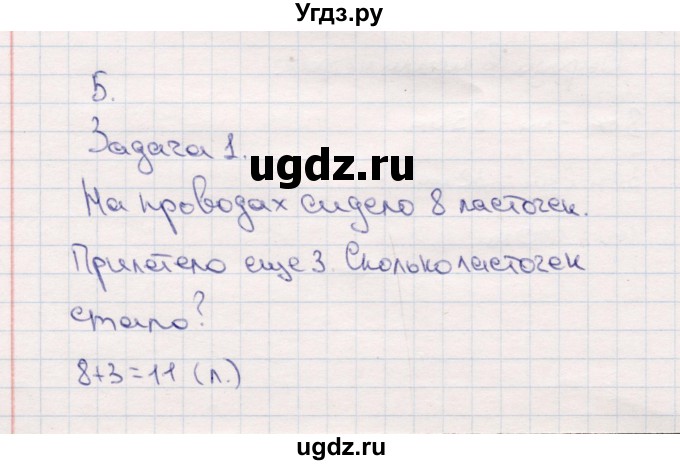 Угдз.ру
5.
Задача 1.
ugdz.ru
На проводах сидело 8 ласточек.
Прилетело еще 3. Сколько ласточек
стало?
8+3=11 (л.)
ugdz.ru